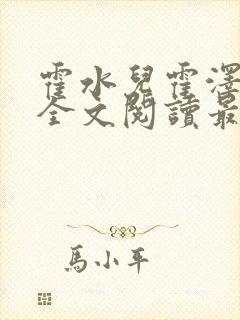 霍水兒霍澤
全文閱讀最
馬小平